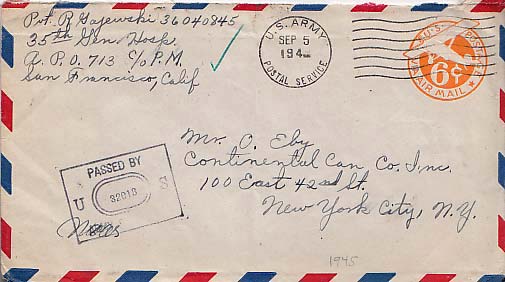 Pvt. R Gajewski 36040845
35th Gen. Hosp.
A. P. O. 713 c/o P.M.
San Francisco, Calif
U.S. ARMY
SEP 5
194
POSTAL SERVICE
U.S. POSTAGE
6¢
VIA AIR MAIL
Mr. O. Eby
Continental Can Co. Inc.
100 East 42nd St.
New York City, N.Y.
PASSED BY
U S
32018
1945